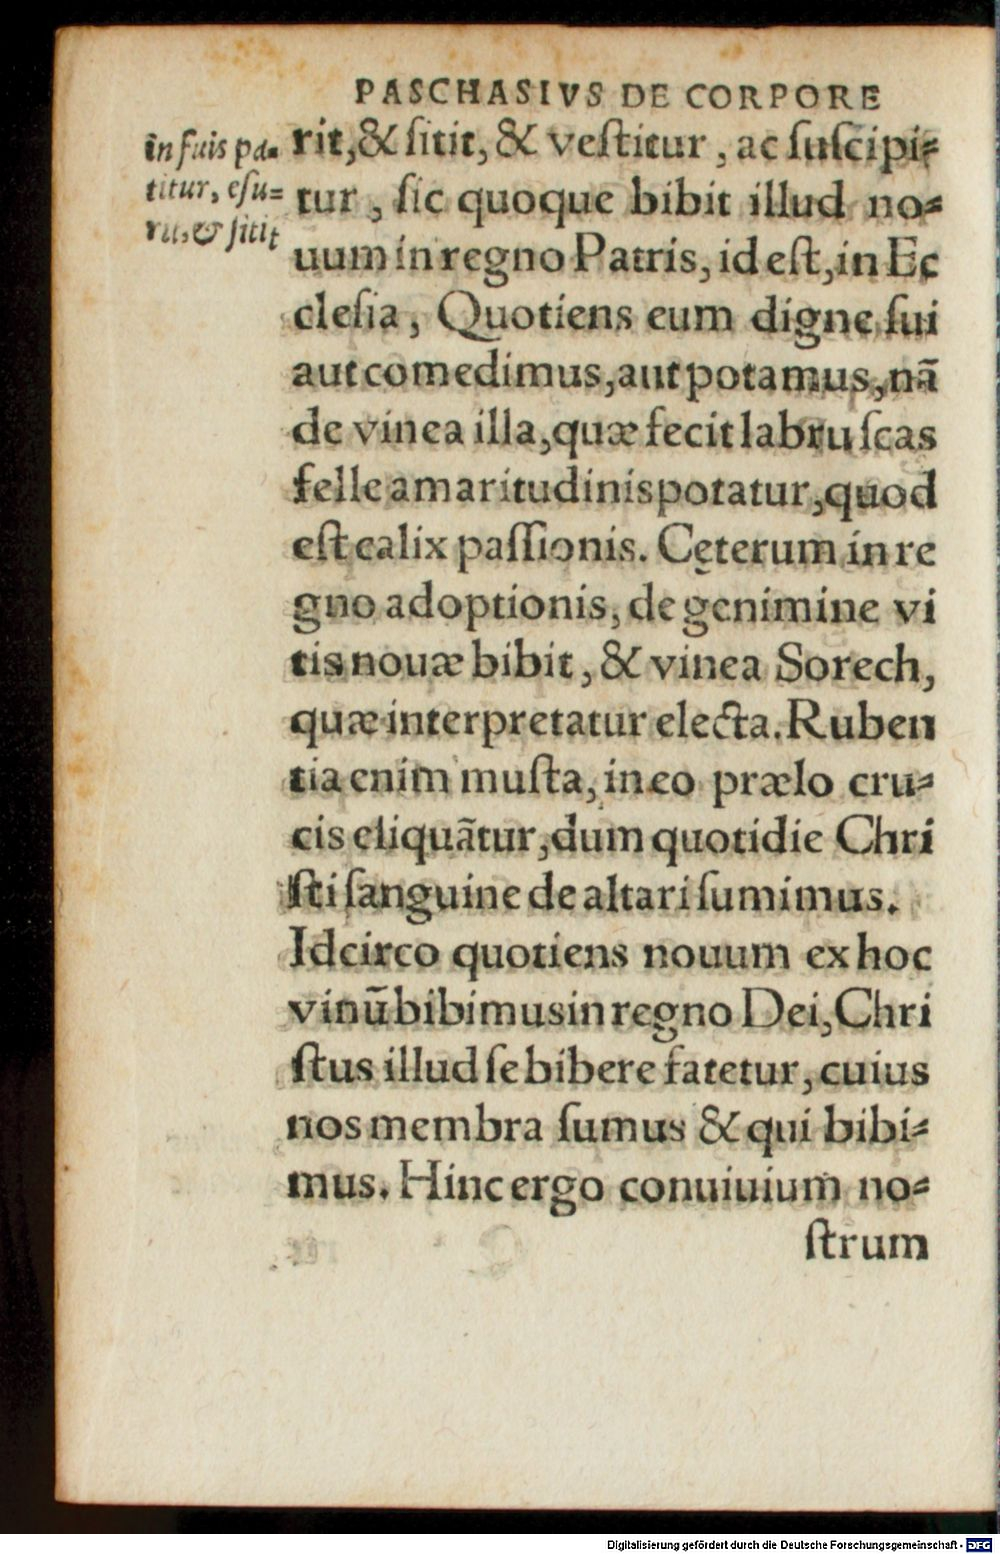 PASCHASIVS DE CORPORE
in suis pa-
titur, esu-
rit, & sitit
rit, & sitit, & vestitur, ac suscipi-
tur, sic quoque bibit illud no-
uum in regno Patris, id est, in Ec
clesia, Quotiens eum digne sui
aut comedimus, aut potamus, nā
de vinea illa, quæ fecit labruscas
felle amaritudinis potatur, quod
est calix passionis. Cęterum in re
gno adoptionis, de genimine vi
tis nouæ bibit, & vinea Sorech,
quæ interpretatur electa. Ruben
tia enim musta, in eo prælo cru-
cis eliquātur, dum quotidie Chri
sti sanguine de altari sumimus.
Idcirco quotiens nouum ex hoc
vinū bibimus in regno Dei, Chri
stus illud se bibere fatetur, cuius
nos membra sumus & qui bibi-
mus. Hinc ergo conuiuium no-
strum
Digitalisierung gefördert durch die Deutsche Forschungsgemeinschaft - DFG